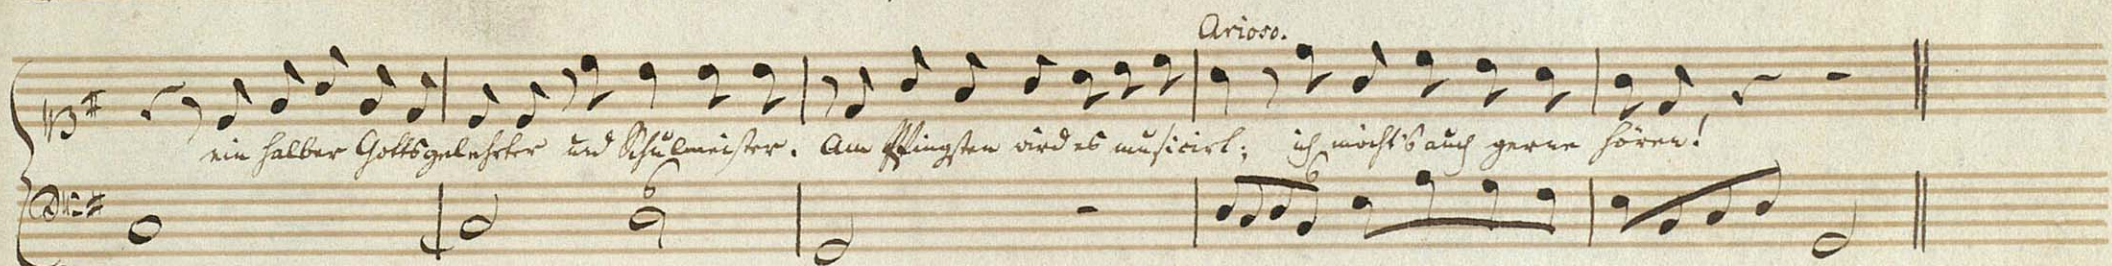 Arioso.
ein halber Gottsgelehrter und Schulmeister. Am Pfingsten wird es musicirt; ich möcht's auch gerne hören!
6 6